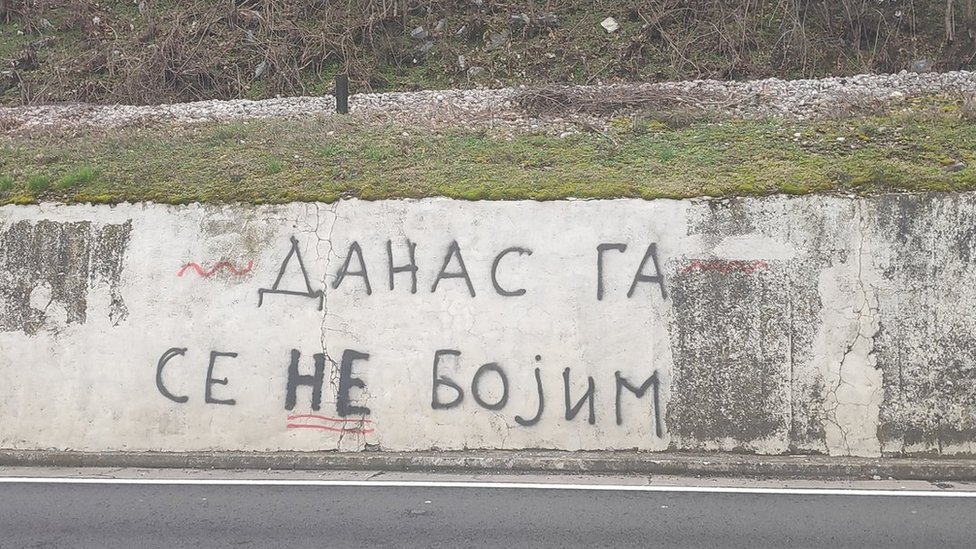 ДАНАС ГА
СЕ НЕ БОЈИМ